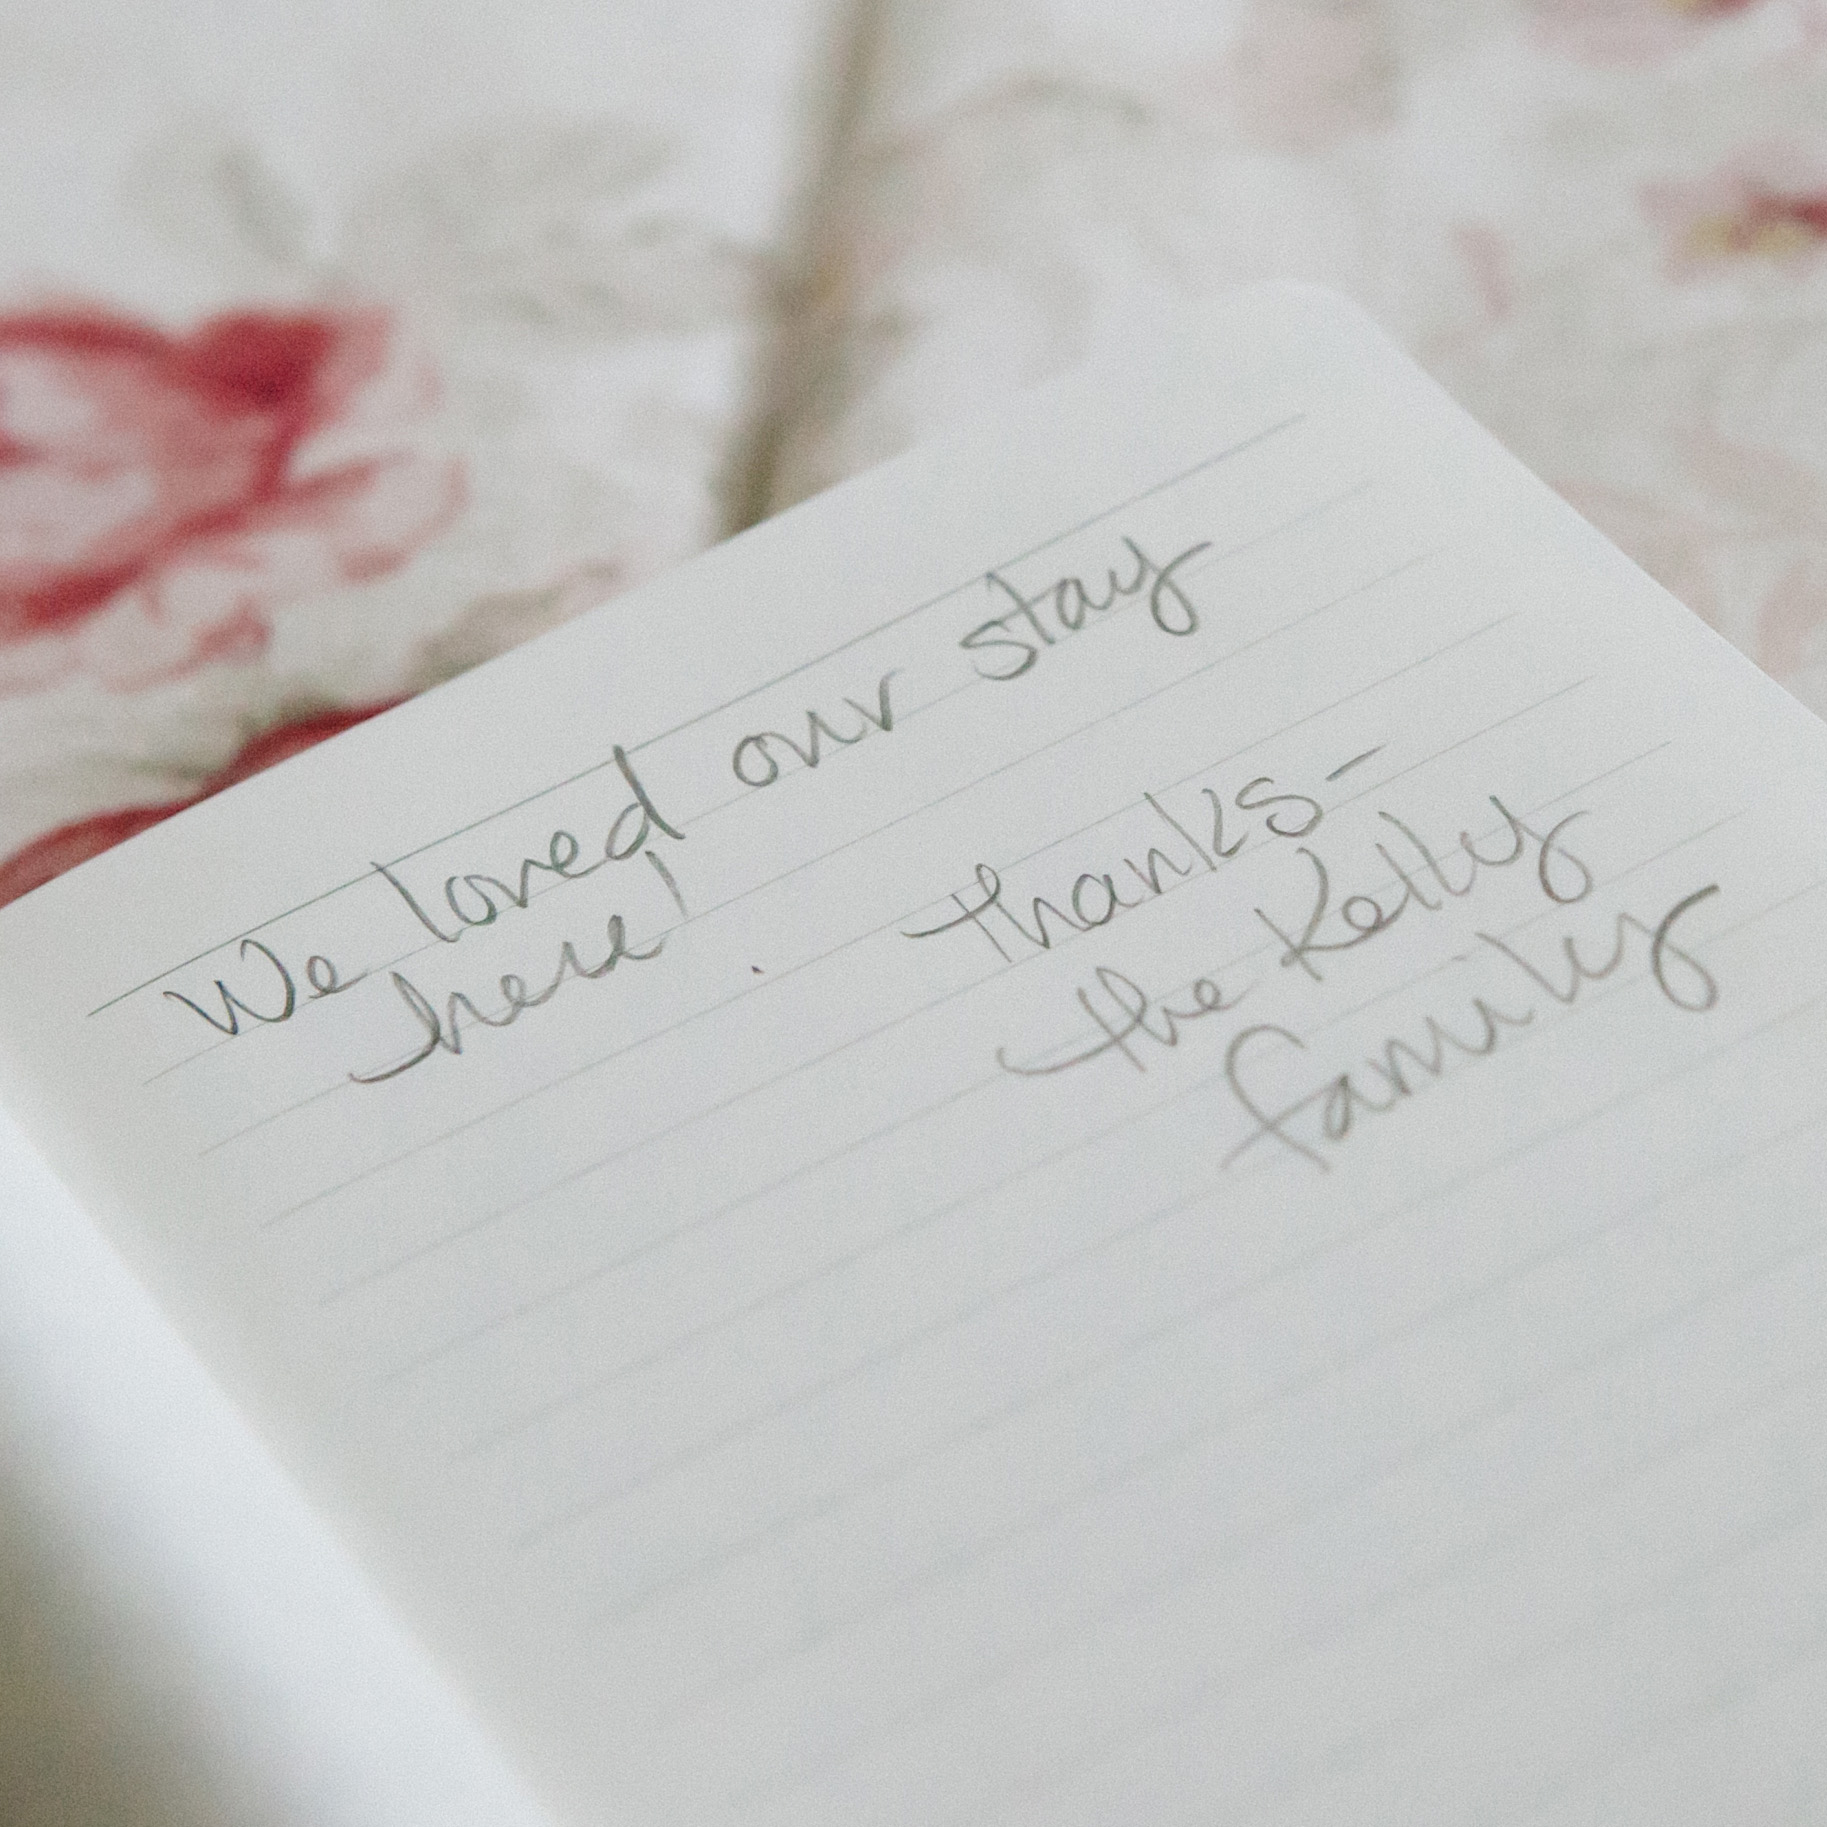 We loved our stay
here!
thanks-
the Kelly
family